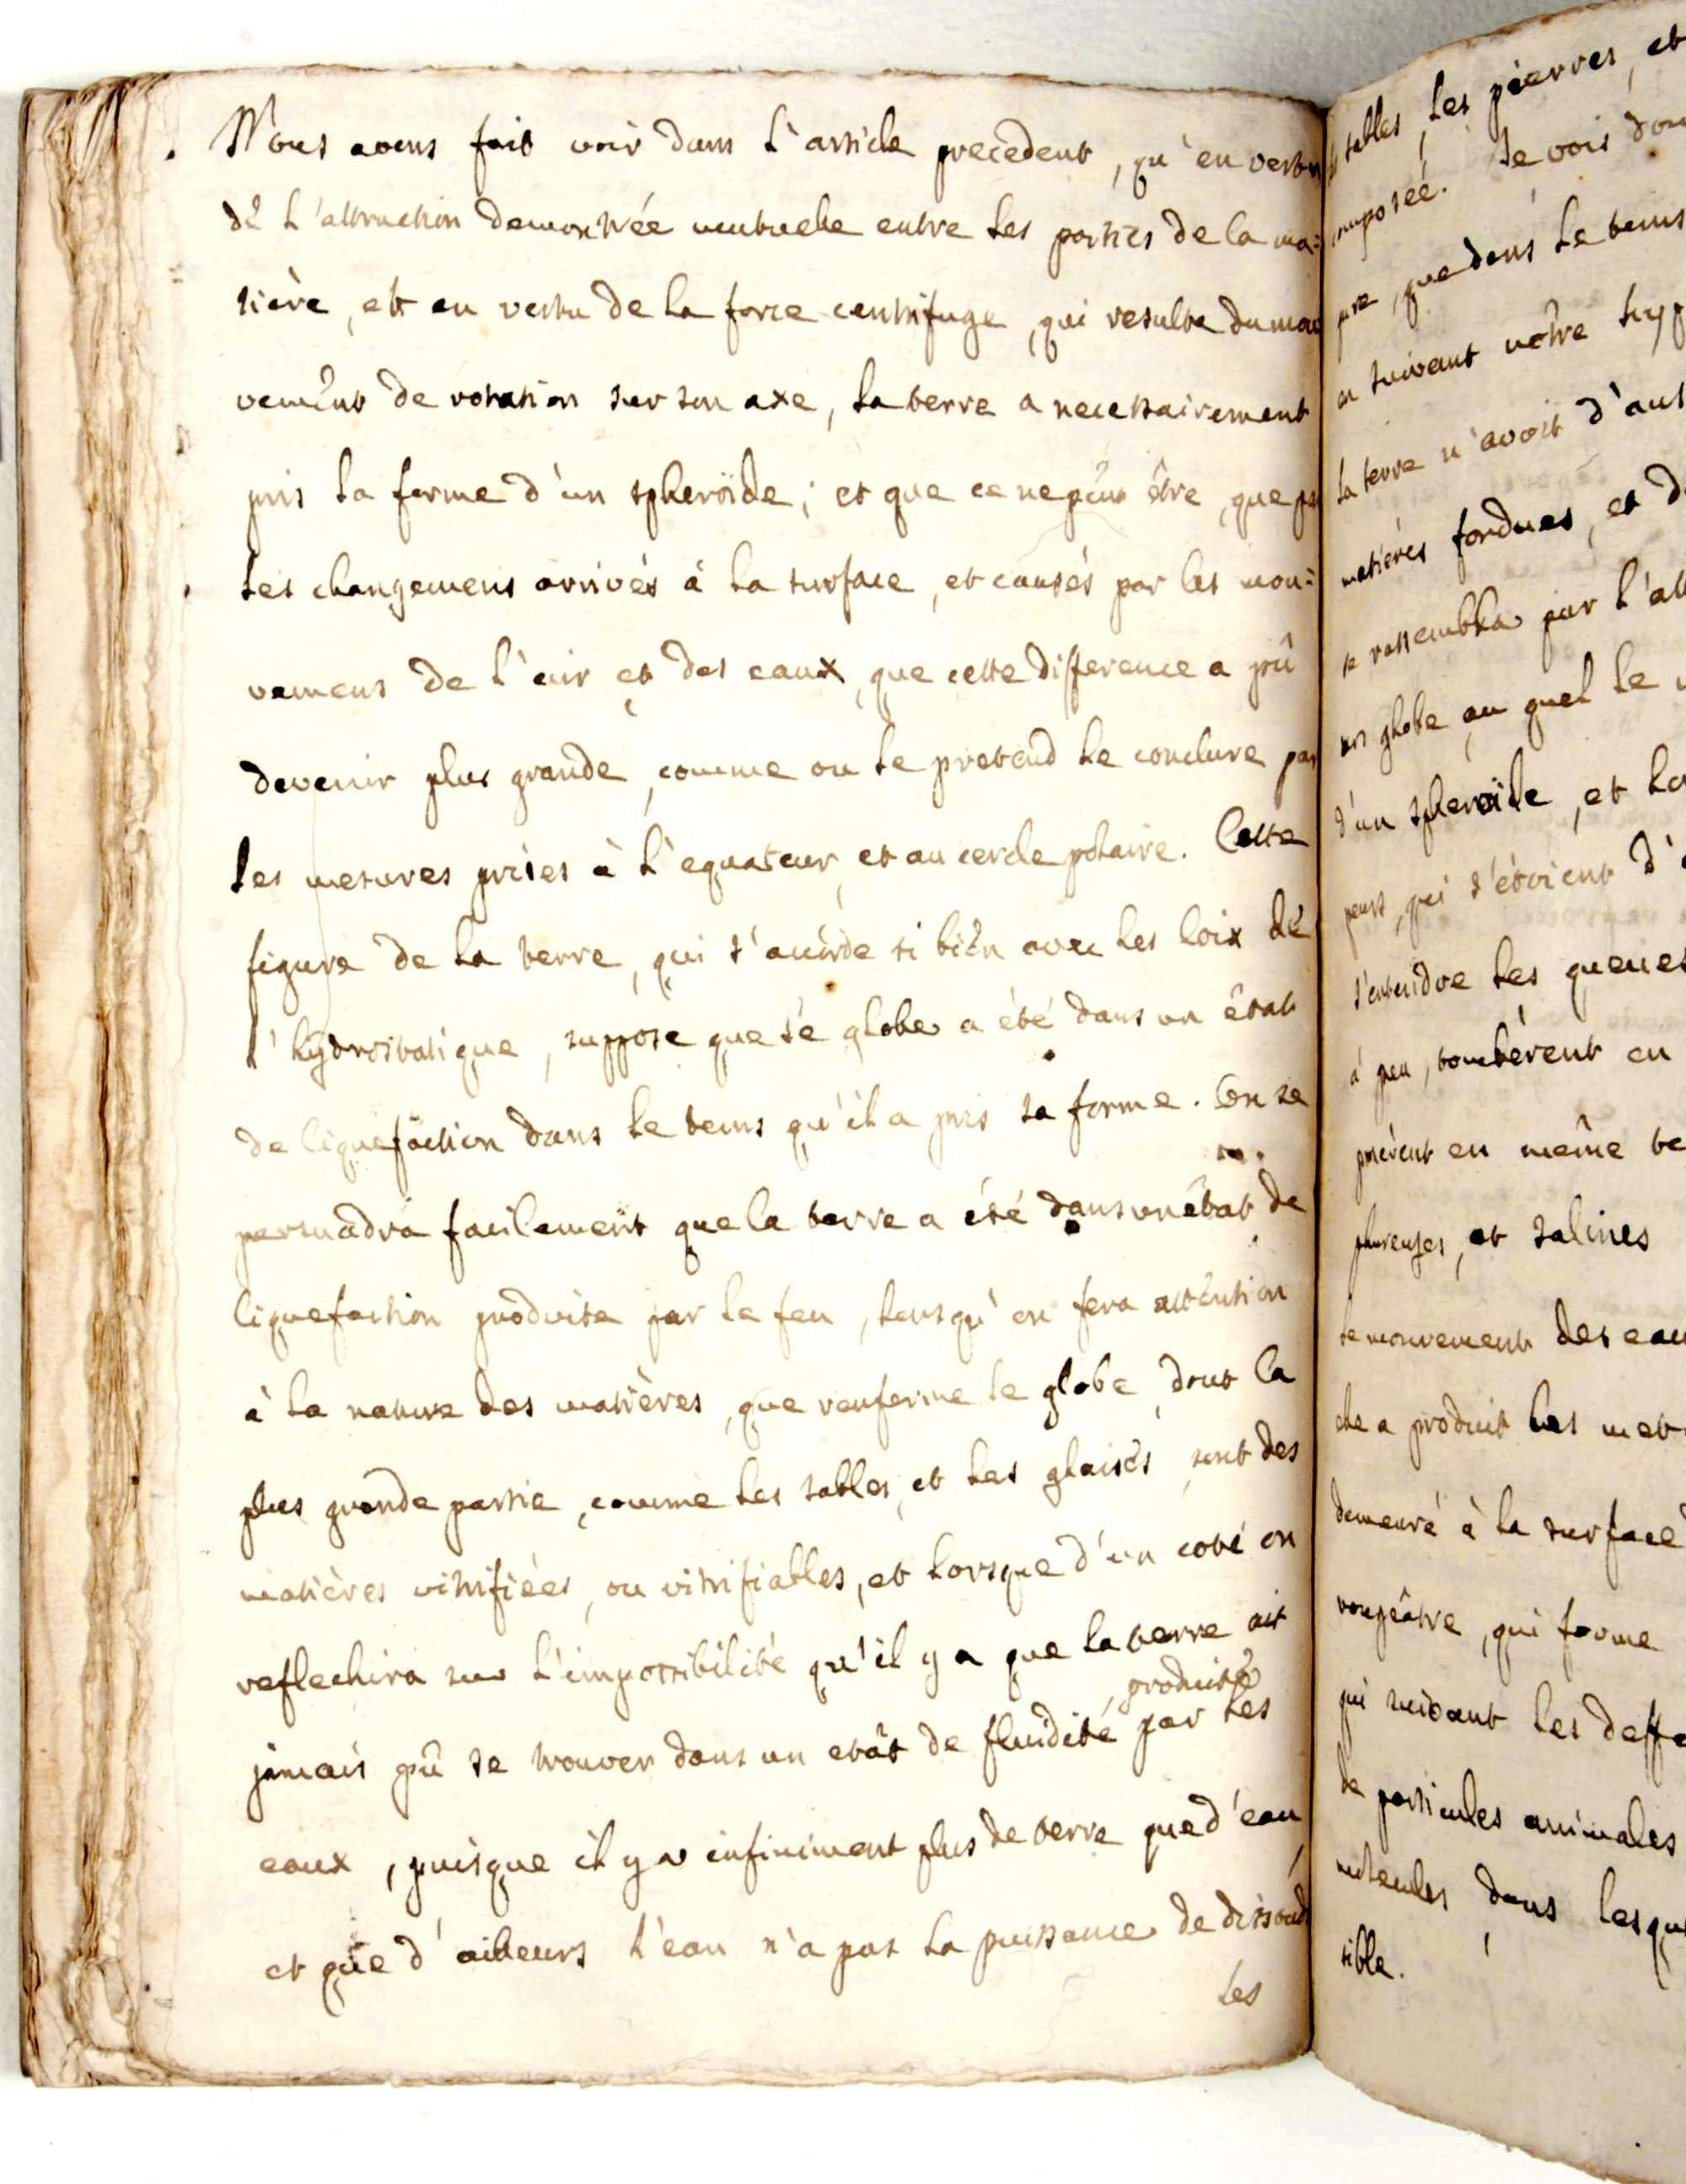 Nous avons fait voir dans l'article precedent, qu'en vertu
de l'attraction demontrée mutuelle entre les parties de la ma=
tière, et en vertu de la force centrifuge, qui resulte du mou
vement de rotation sur son axe, la terre a necessairement
pris la forme d'un spheroïde; et que ce ne peut être, que par
les changemens arrivés à la surface, et causés par les mou=
vemens de l'air et des eaux, que cette difference a pû
devenir plus grande, comme on le pretend le conclure par
les mesures prises à l'equateur, et au cercle polaire. Cette
figure de la terre, qui s'acorde si bien avec les loix de
l'hydrostatique, suppose que le globe a été dans un état
de liquefaction dans le tems qu'il a pris sa forme. On se
persuadra facilement que la terre a été dans un état de
liquefaction produite par le feu, lorsqu'on fera attention
à la nature des matières, que renferme le globe, dont la
plus grande partie, comme les sables, et les glaises, sont des
matières vitrifiées, ou vitrifiables, et lorsque d'un coté on
reflechira sur l'impossibilité qu'il y a que la terre ait
produite
jamais pû se trouver dans un etât de fluidité, par les
eaux, puisque il y a infiniment plus de terre que d'eau,
et que d'ailleurs l'eau n'a pas la puissance de dissoud
les
sables, les pierres, et
composée. Je vois don
que dans le tems
en suivant nôtre hyp
la terre n'avoit d'aut
matières fondues, et d
se rassembla par l'att
un globe, au quel le
d'un spheroïde, et la
qui s'étoient d'
s'entendre les queues
à peu, tombèrent en
en même te
et salines
le mouvement des eau
elle a produit les met
demeuré à la surface
rougeâtre, qui forme
qui suivant les diffe
de particules animales
molecules dans lesque
sible.